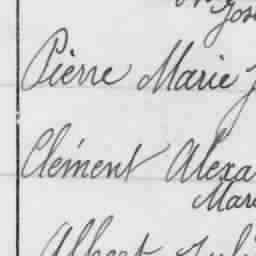 Jos
Pierre Marie J
Clément Alexa
Mar
Albert Juli